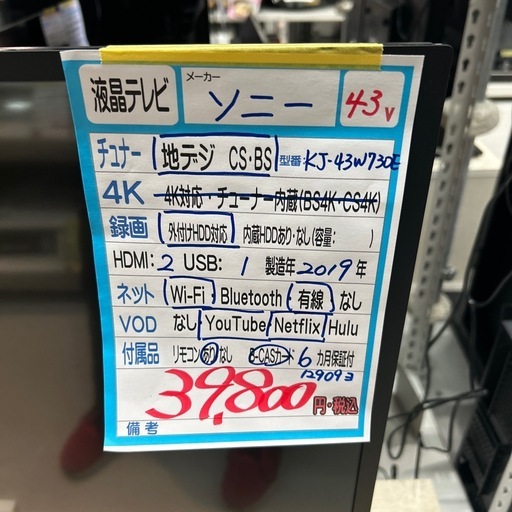 液晶テレビ メーカー ソニー 43V
チューナー 地デジ CS・BS 型番 KJ-43W730E
4K 4K対応・チューナー内蔵(BS4K・CS4K)
録画 外付けHDD対応 内蔵HDDあり・なし(容量: )
HDMI: 2 USB: 1 製造年 2019年
ネット Wi-Fi Bluetooth・有線 なし
VOD なし YouTube Netflix Hulu
付属品 リモコン あり なし B-CASカード 6カ月保証付
129093
39,800円・税込
備考